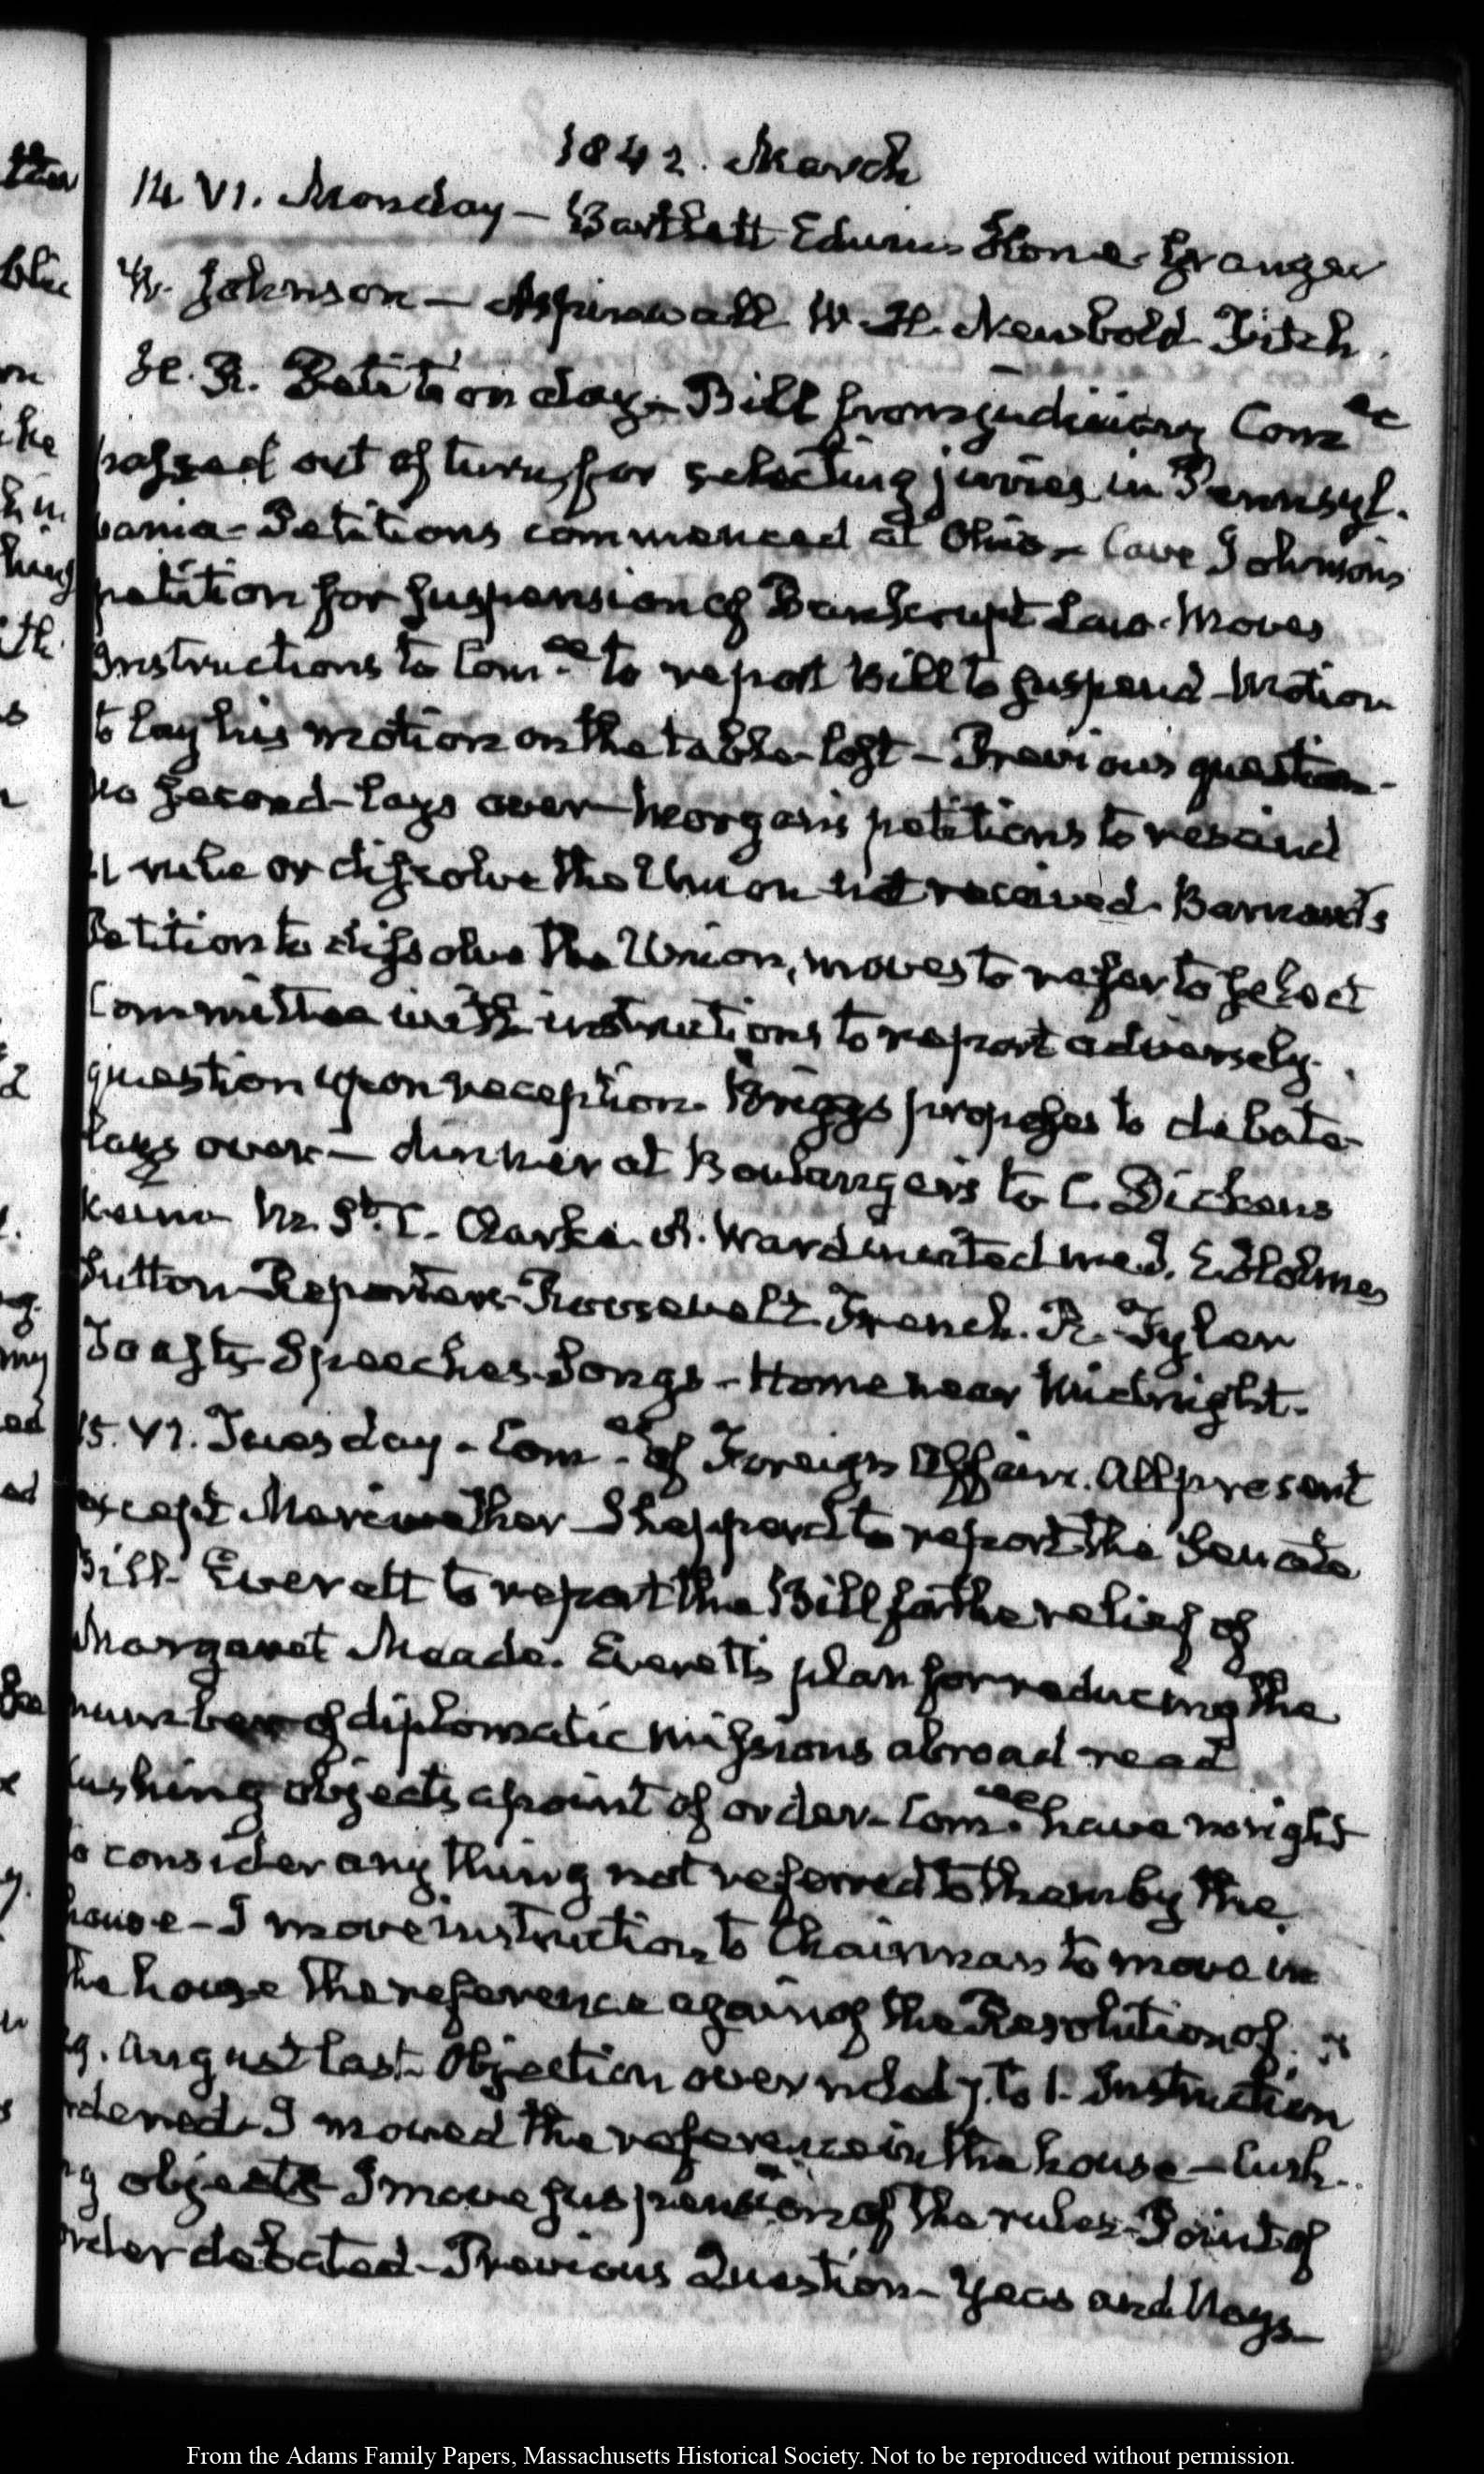 1842. March
14. VI. Monday — Bartlett Edwin Stone Granger
W. Johnson — Aspinwall W. H. Newbold Fitch.
H. R. Petition day — Bill from judiciary Com.ee
passed out of turn, for selecting juries in Pennsyl-
vania — Petitions commenced at Ohio — Cave Johnson's
petition for suspension of Bankrupt Law. Moves
Instructions to Com.ee to report Bill to suspend — Motion
to lay his motion on the table lost — Previous question —
no second — lays over — Morgan's petitions to rescind
21 rule or dissolve the Union not received. Barnard's
Petition to dissolve the Union, moves to refer to select
Committee with instructions to report adversely.
question upon reception. Briggs proposes to debate —
lays over — dinner at Boulanger's to C. Dickens
Keim M. St. C. Clarke. A. Ward invited me J. E. Holmes
Sutton Reporters Roosevelt. French. R. Tyler
Toasts Speeches Songs — Home near Midnight.
15. VI. Tuesday — Com.ee of Foreign Affairs. All present
except Meriwether — Shepperd to report the Senate
Bill. Everett to report the Bill for the relief of
Margaret Meade. Everett's plan for reducing the
number of diplomatic missions abroad read
Cushing objects a point of order — Com.ee have no right
to consider any thing not referred to them by the
house — I move instruction to Chairman to move in
the house the reference again of the Resolution of
29. August last. Objection overruled 7. to 1. Instruction
ordered. I moved the reference in the house — Cush-
ing objects I move suspension of the rules — Point of
order debated — Previous Question — Yeas and Nays —
From the Adams Family Papers, Massachusetts Historical Society. Not to be reproduced without permission.